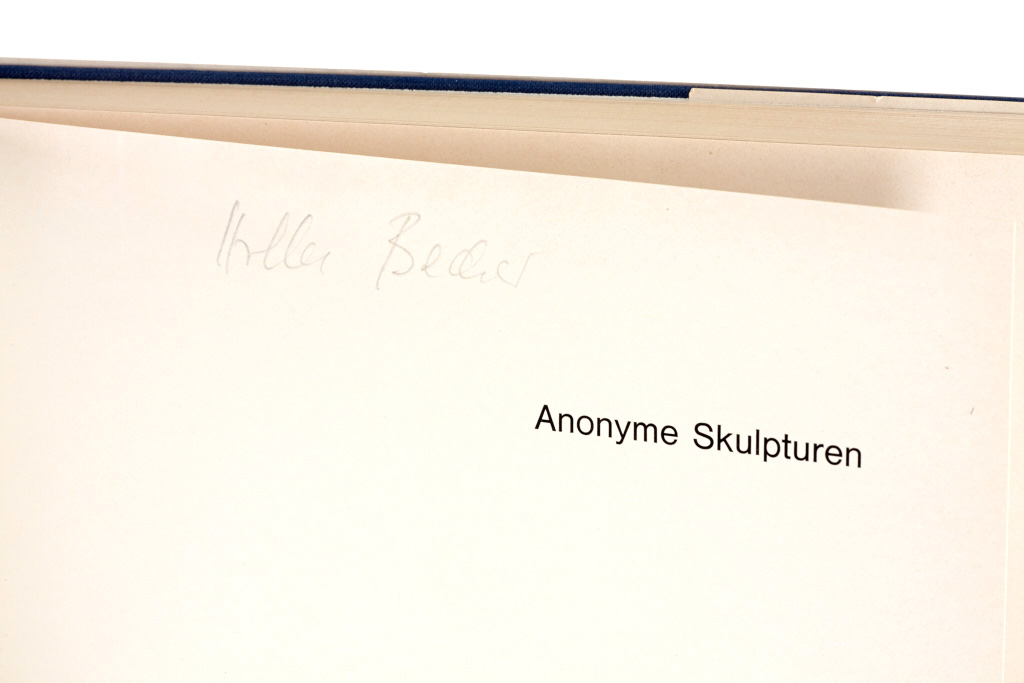 Hilla Becher
Anonyme Skulpturen